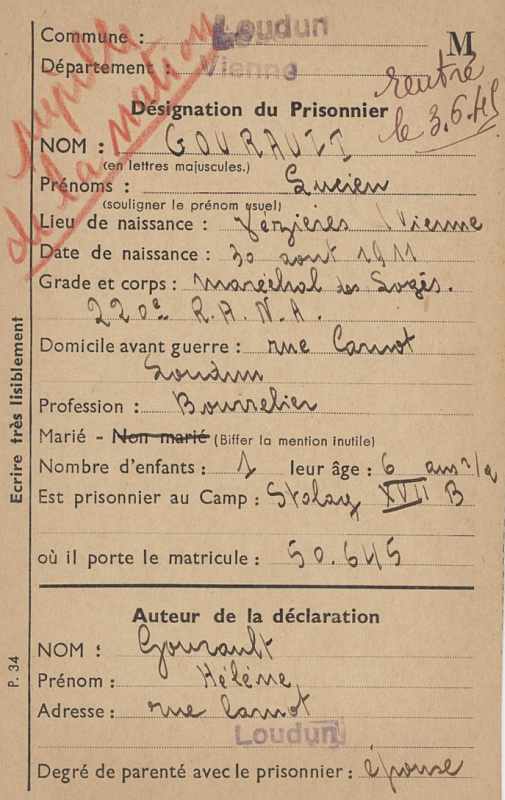 Commune : Loudun
M
Département : Vienne
pupille
de la nation
rentré
le 3.6.45
Désignation du Prisonnier
NOM : GOURAULT
(en lettres majuscules.)
Prénoms : Lucien
(souligner le prénom usuel)
Lieu de naissance : Vézières (Vienne
Date de naissance : 30 aout 1911
Grade et corps : Maréchal des Logis.
220e R.A.N.A.
Domicile avant guerre : rue Carnot
Loudun
Profession : Bourrelier
Marié - Non marié (Biffer la mention inutile)
Nombre d'enfants : 1 leur âge : 6 ans 1/2
Est prisonnier au Camp : Stalag XVII B
où il porte le matricule : 50.645
Auteur de la déclaration
NOM : Gourault
Prénom : Hélène
Adresse : rue Carnot
Loudun
Degré de parenté avec le prisonnier : épouse
Ecrire très lisiblement
P. 34